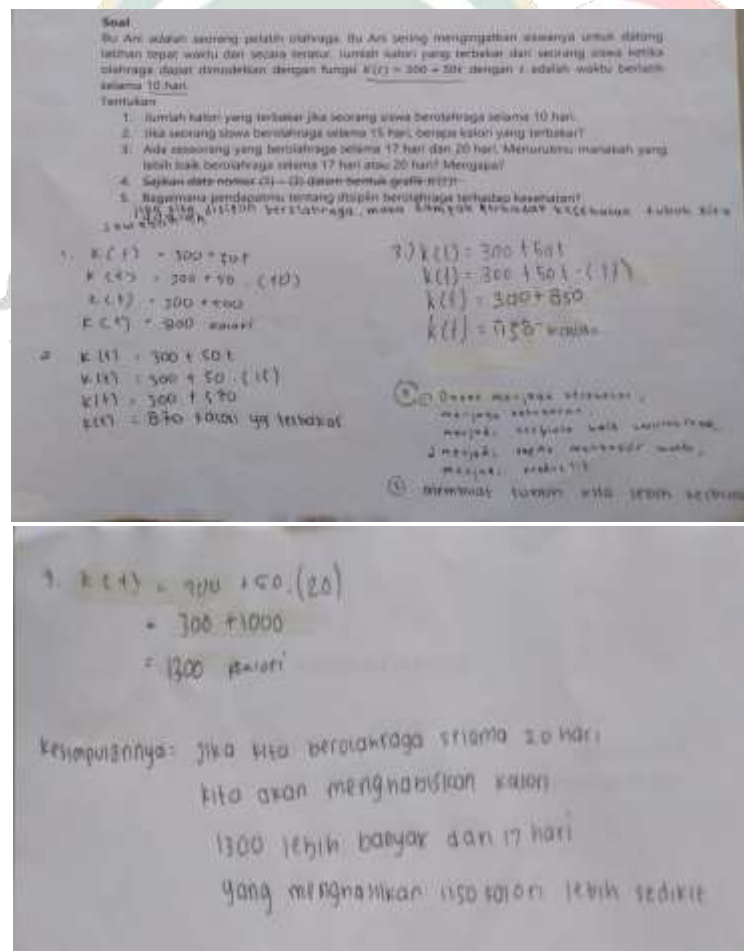 Soal
Bu Ani adalah seorang pelatih olahraga. Bu Ani sering mengingatkan siswanya untuk datang
latihan tepat waktu dan secara teratur. Jumlah kalori yang terbakar dari seorang siswa ketika
olahraga dapat dimodelkan dengan fungsi K(t) = 300 + 50t dengan t adalah waktu berlatih
selama 10 hari.
Tentukan
1. Jumlah kalori yang terbakar jika seorang siswa berolahraga selama 10 hari.
2. Jika seorang siswa berolahraga selama 15 hari, berapa kalori yang terbakar?
3. Ada seseorang yang berolahraga selama 17 hari dan 20 hari. Menurutmu manakah yang
lebih baik berolahraga selama 17 hari atau 20 hari? Mengapa?
4. Sajikan data nomor (1) - (3) dalam bentuk grafik K(t)!
5. Bagaimana pendapatmu tentang disiplin berolahraga terhadap kesehatan?
disiplin berolahraga, maka dampak terhadap kesehatan tubuh kita
1. K(t) = 300 + 50t
K(t) = 300 + 50 . (10)
K(t) = 300 + 500
K(t) = 800 kalori
2 K(t) = 300 + 50t
K(t) = 300 + 50 . (15)
K(t) = 300 + 570
K(t) = 870 kalori yg terbakar
3.) k(t) = 300 + 50t
k(t) = 300 + 50t . (17)
k(t) = 300 + 850
k(t) = 1150 kalori
Dapat menjaga
menjaga
menjadi baik
menjadi
menjadi
membuat tubuh kita lebih
3. k(t) = 300 + 50.(20)
= 300 + 1000
= 1300 kalori
Kesimpulannya: jika kita berolahraga selama 20 hari
kita akan menghabiskan kalori
1300 lebih banyak dari 17 hari
yang menghasilkan 1150 kalori lebih sedikit